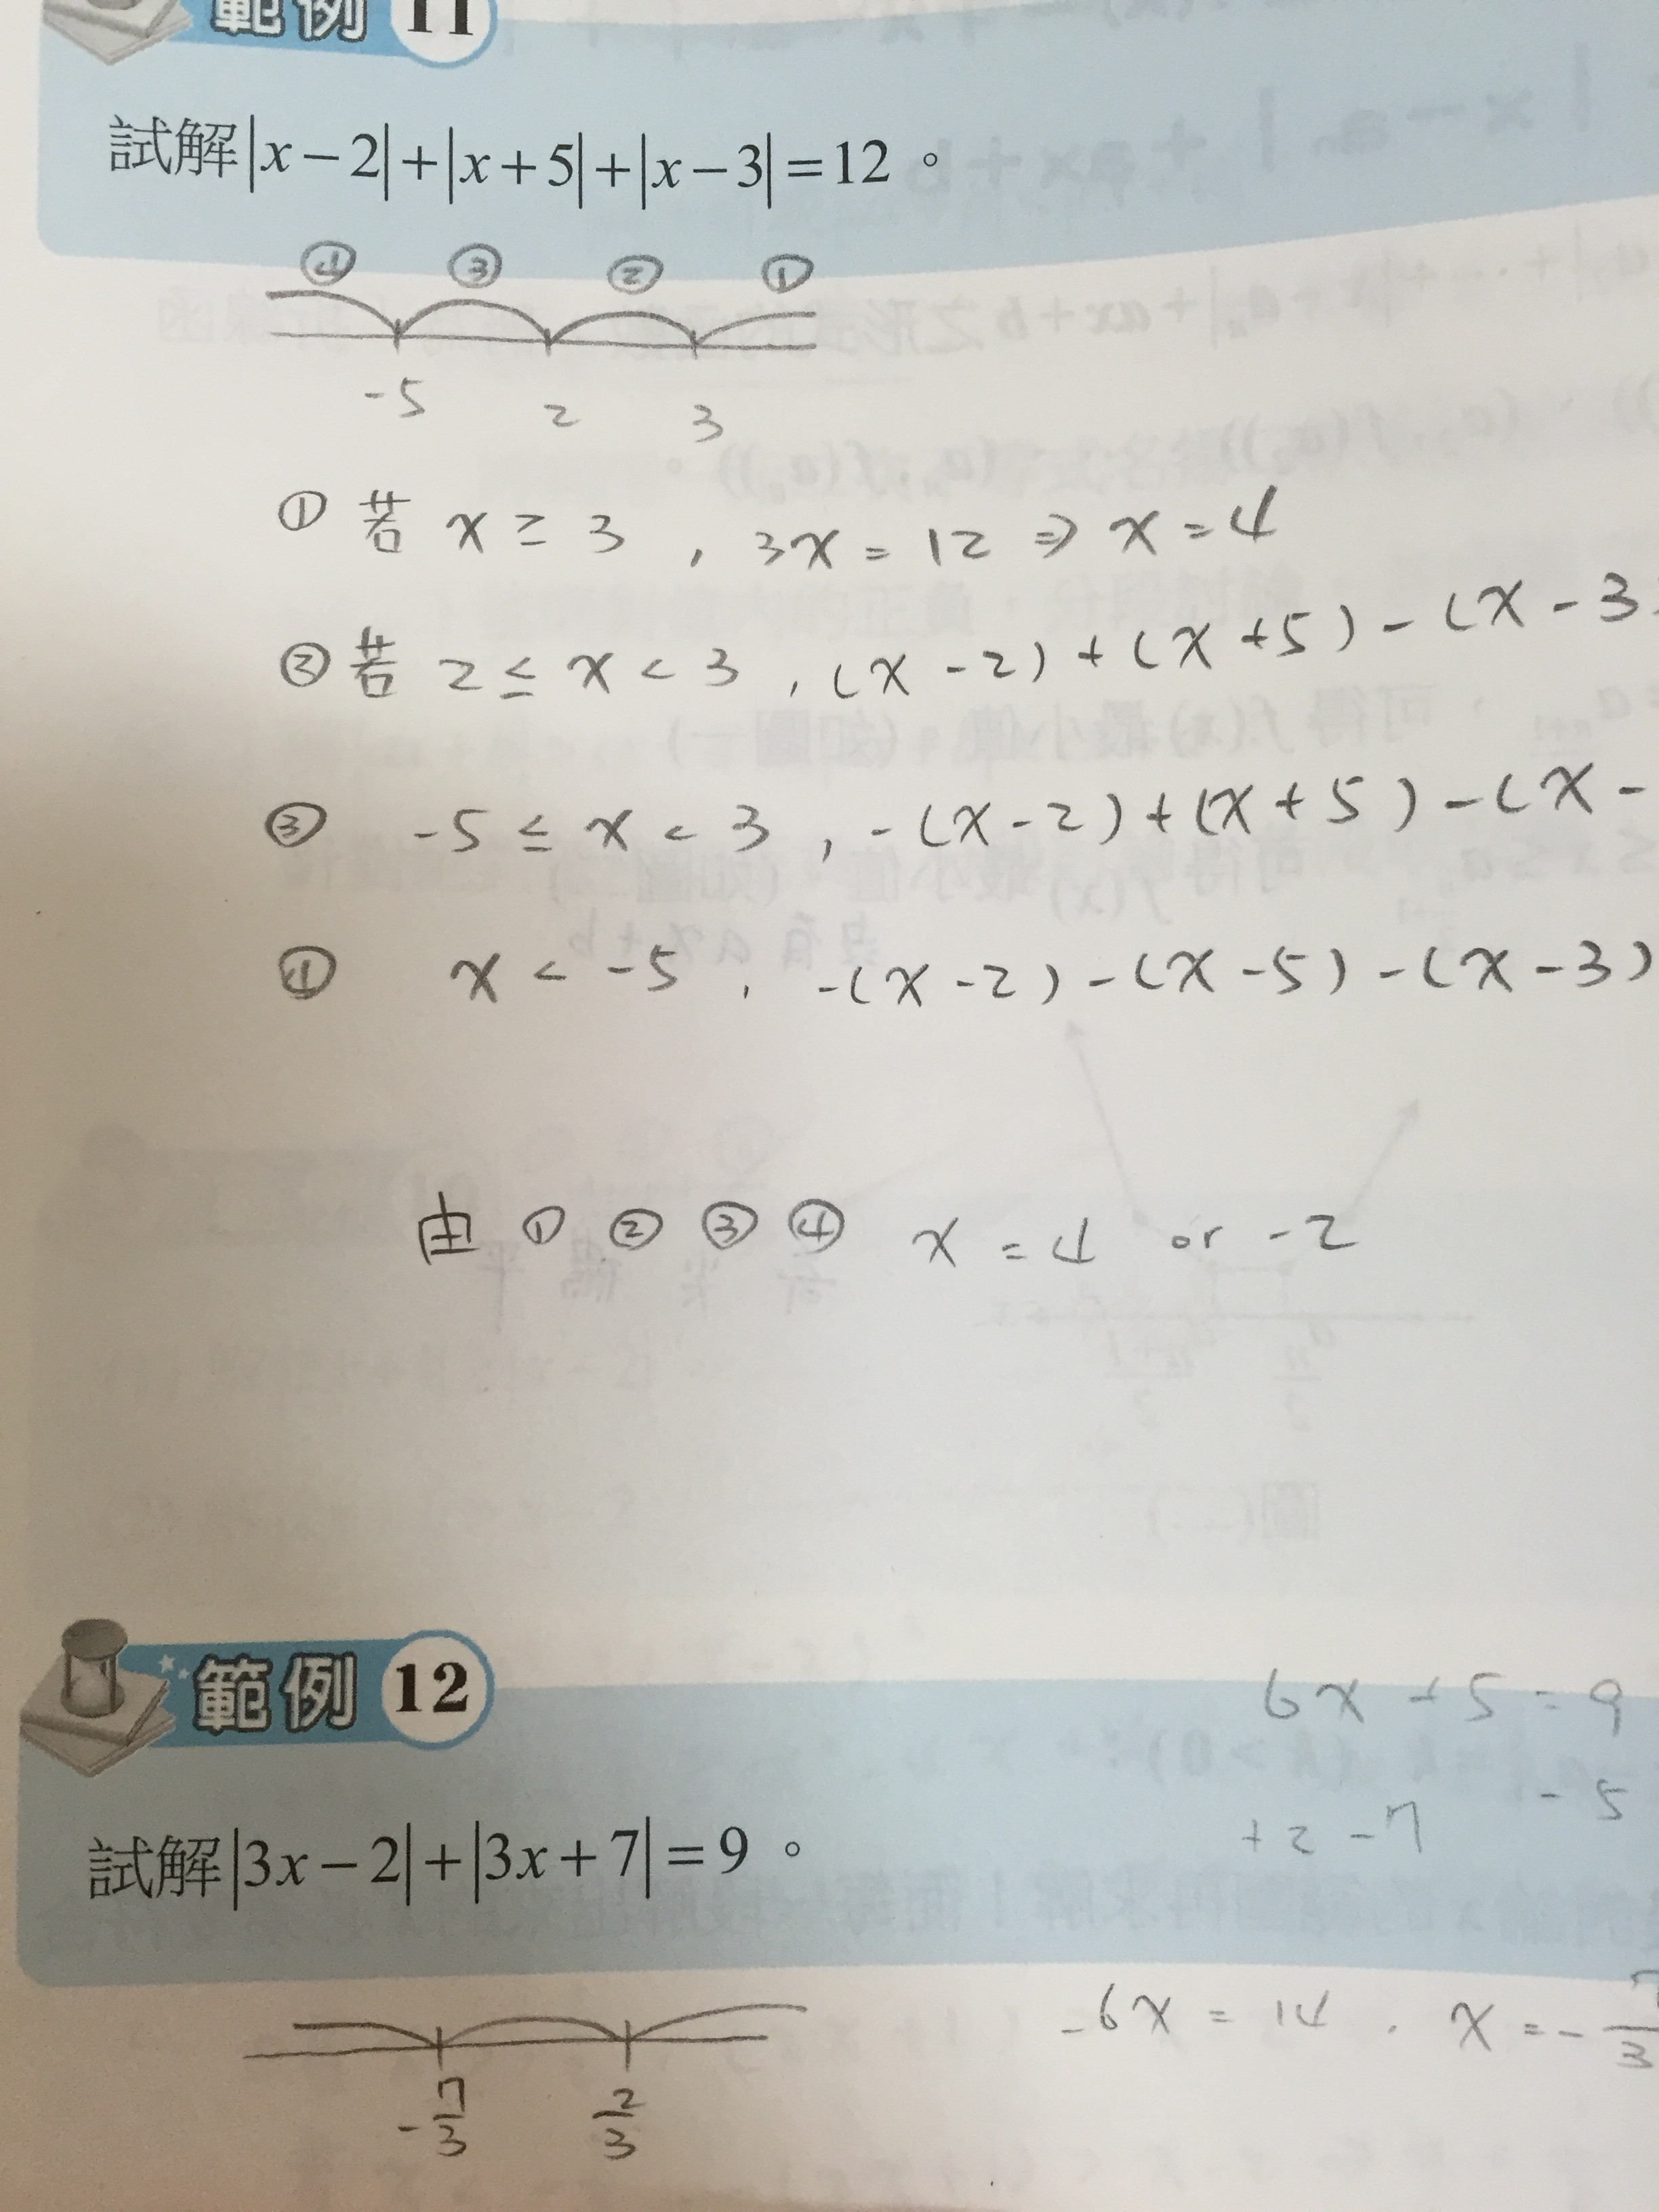 範例 11
試解|x−2|+|x+5|+|x−3|=12。
④ ③ ② ①
-5 2 3
① 若 x ≥ 3 , 3x = 12 ⇒ x = 4
② 若 2 ≤ x < 3 , (x-2)+(x+5)-(x-3
③ -5 ≤ x < 3 , -(x-2)+(x+5)-(x-
④ x < -5 , -(x-2)-(x-5)-(x-3)
由 ① ② ③ ④ x = 4 or -2
範例 12
6x+5=9
-5
+2-7
試解|3x−2|+|3x+7|=9。
-6x = 14 , x = -7/3
-7/3 2/3